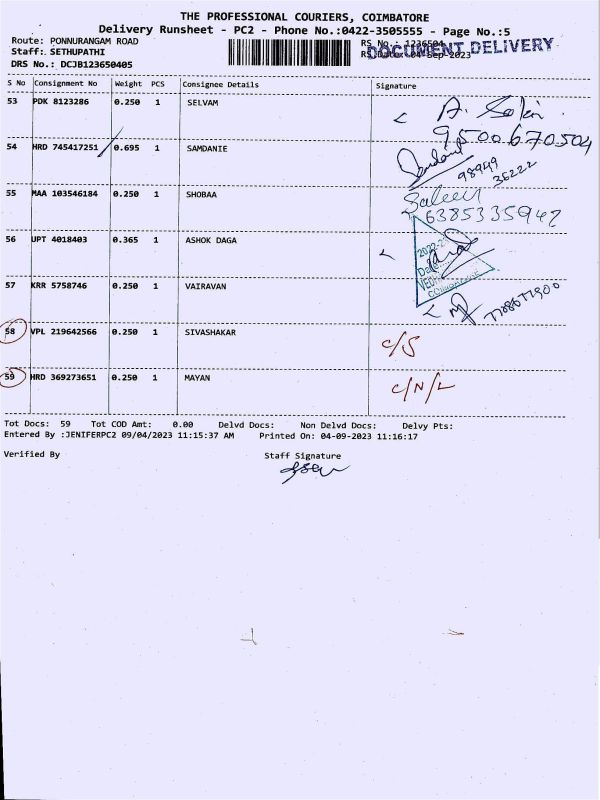 THE PROFESSIONAL COURIERS, COIMBATORE
Delivery Runsheet - PC2 - Phone No.:0422-3505555 - Page No.:5
Route: PONNURANGAM ROAD
Staff: SETHUPATHI
DRS No.: DCJB123650405
RS No.: 1236504
RS Date: 04-Sep-2023
DOCUMENT DELIVERY
S No Consignment No Weight PCS Consignee Details Signature
53 PDK 8123286 0.250 1 SELVAM
9500670504
54 HRD 745417251 0.695 1 SAMDANIE
98949
36222
55 MAA 103546184 0.250 1 SHOBAA
Saleem
6385335942
56 UPT 4018403 0.365 1 ASHOK DAGA
57 KRR 5758746 0.250 1 VAIRAVAN
58 VPL 219642566 0.250 1 SIVASHAKAR C/S
59 HRD 369273651 0.250 1 MAYAN C/N/L
Tot Docs: 59 Tot COD Amt: 0.00 Delvd Docs: Non Delvd Docs: Delvy Pts:
Entered By :JENIFERPC2 09/04/2023 11:15:37 AM Printed On: 04-09-2023 11:16:17
Verified By Staff Signature